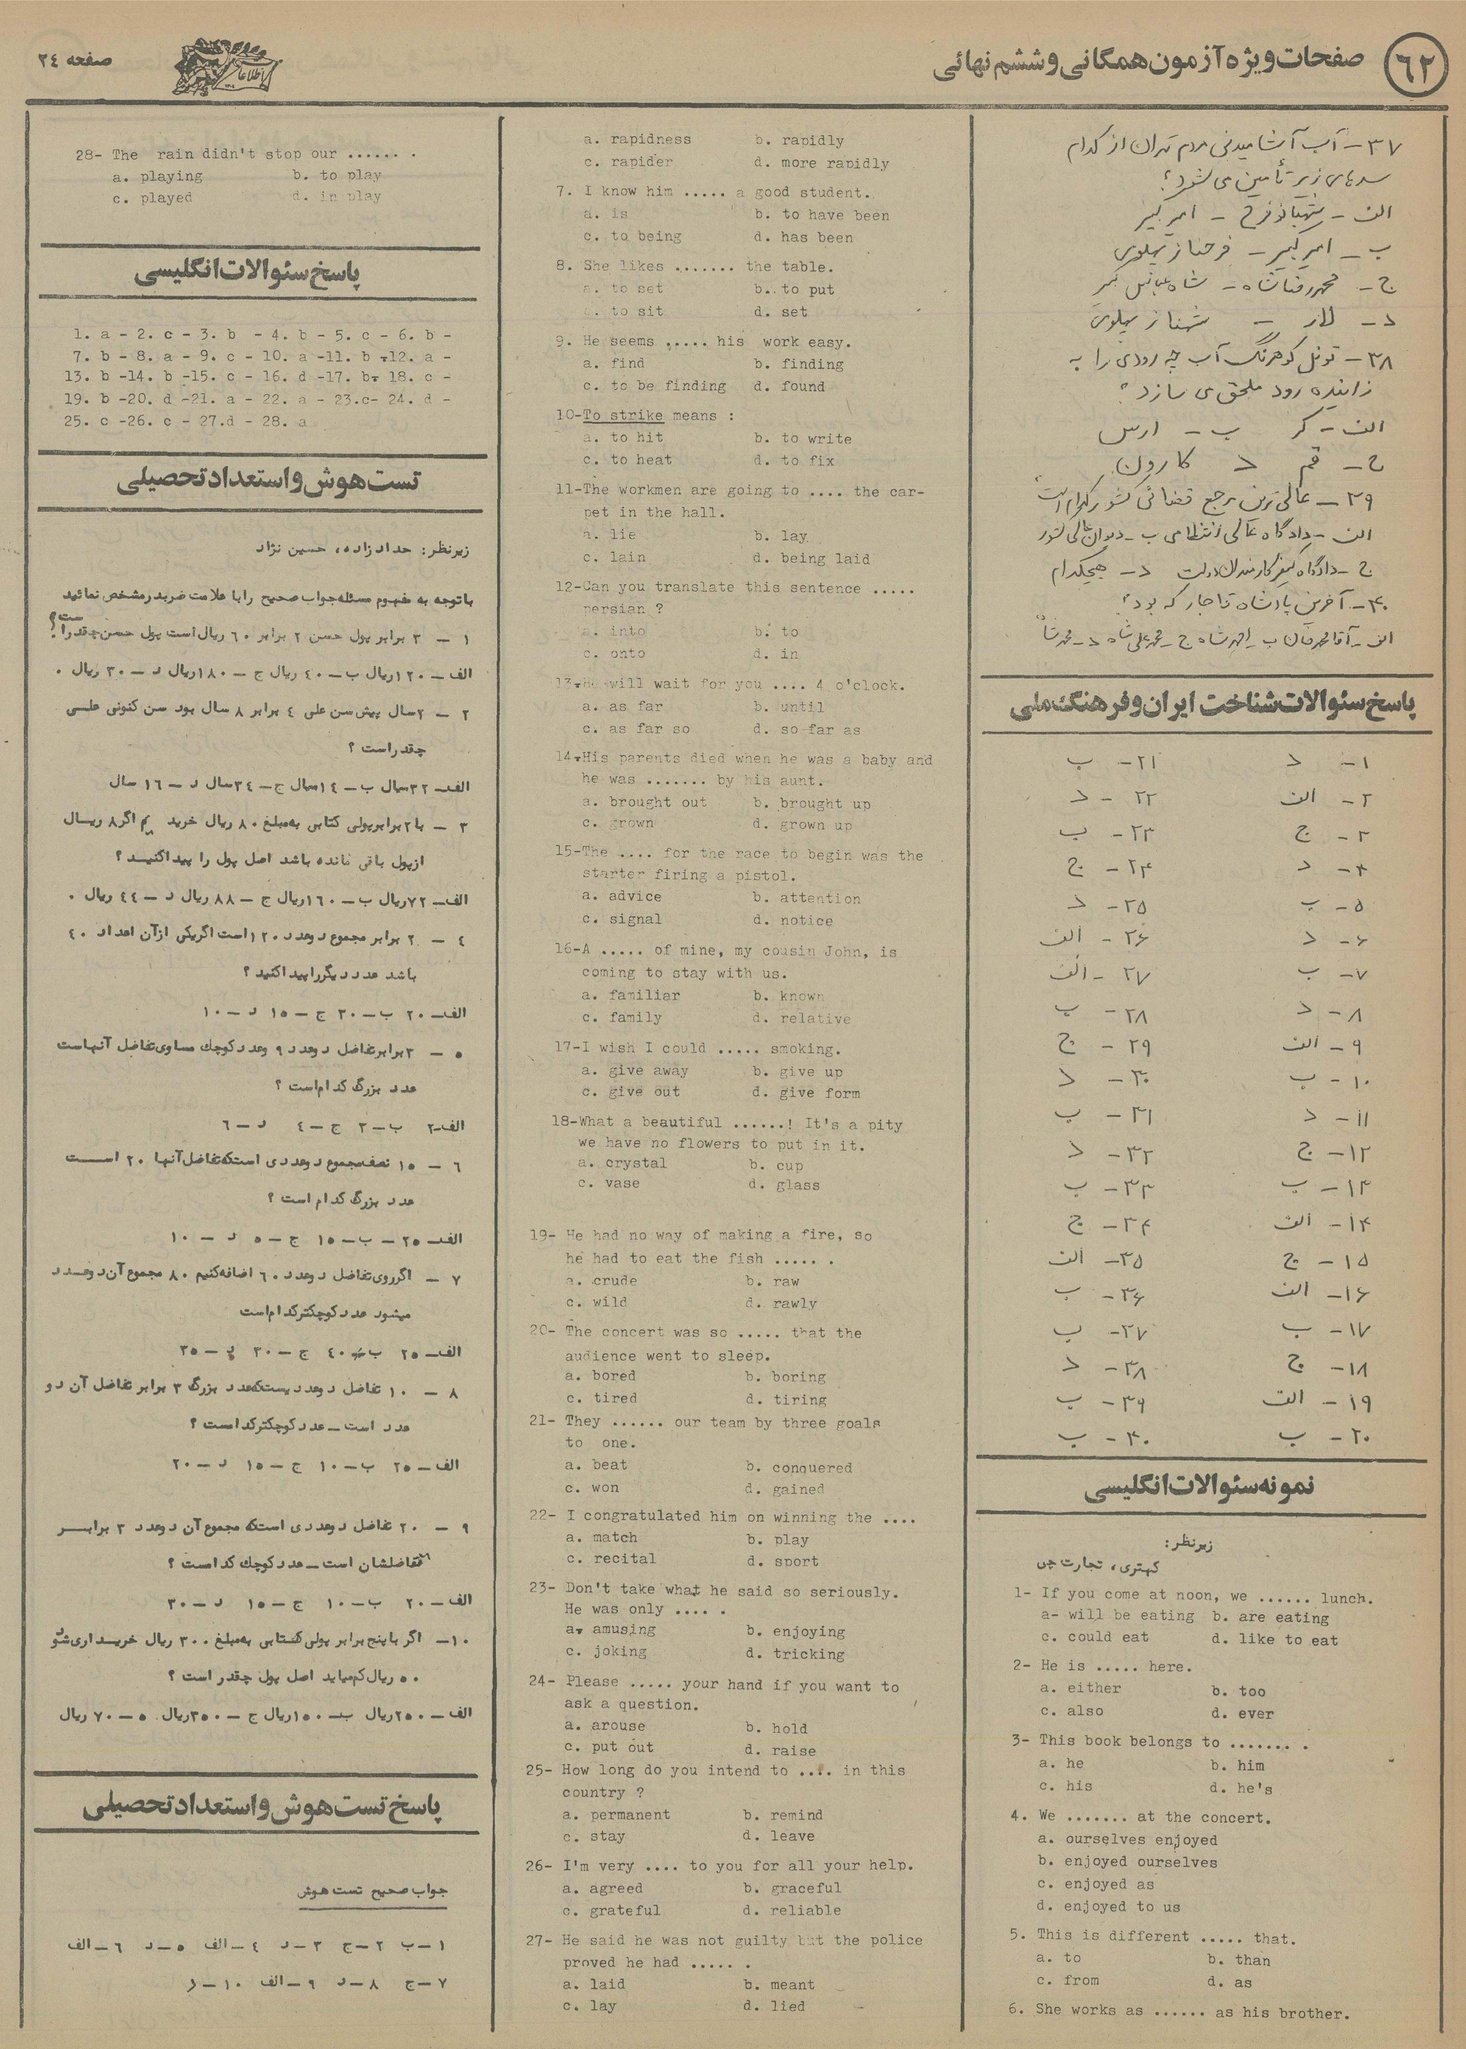 صفحات ویژه آزمون همگانی و ششم نهائی
۶۲
صفحه ۲۴
۳۷ - آب آشامیدنی مردم تهران از کدام
سدهای زیر تأمین می شود؟
الف - شهبانو فرح - امیر کبیر
ب - امیر کبیر - فرحناز پهلوی
ج - محمدرضا شاه - شاه عباس کبیر
د - لار - شهناز پهلوی
۳۸ - تونل کوهرنگ آب چه رودی را به
زاینده رود ملحق می سازد؟
الف - کر ب - ارس
ج - قم د کارون
۳۹ - عالی ترین مرجع قضائی کشور کدام است؟
الف - دادگاه عالی انتظامی ب - دیوان عالی کشور
ج - دادگاه کیفر کارمندان دولت د - هیچکدام
۴۰ - آخرین پادشاه قاجار که بود؟
الف - آقا محمدخان ب - احمد شاه ج - محمد علی شاه د - محمد شاه
پاسخ سئوالات شناخت ایران و فرهنگ ملی
۱ - د ۲۱ - ب
۲ - الف ۲۲ - د
۳ - ج ۲۳ - ب
۴ - د ۲۴ - ج
۵ - ب ۲۵ - د
۶ - د ۲۶ - الف
۷ - ب ۲۷ - الف
۸ - د ۲۸ - ب
۹ - الف ۲۹ - ج
۱۰ - ب ۳۰ - د
۱۱ - د ۳۱ - ب
۱۲ - ج ۳۲ - د
۱۳ - ب ۳۳ - ب
۱۴ - الف ۳۴ - ج
۱۵ - ج ۳۵ - الف
۱۶ - الف ۳۶ - ب
۱۷ - ب ۳۷ - ب
۱۸ - ج ۳۸ - د
۱۹ - الف ۳۹ - ب
۲۰ - ب ۴۰ - ب
نمونه سئوالات انگلیسی
زیرنظر:
کهتری، تجارت چی
1- If you come at noon, we ...... lunch.
a- will be eating b. are eating
c. could eat d. like to eat
2- He is ..... here.
a. either b. too
c. also d. ever
3- This book belongs to ....... .
a. he b. him
c. his d. he's
4. We ....... at the concert.
a. ourselves enjoyed
b. enjoyed ourselves
c. enjoyed as
d. enjoyed to us
5. This is different ..... that.
a. to b. than
c. from d. as
6. She works as ...... as his brother.
a. rapidness b. rapidly
c. rapider d. more rapidly
7. I know him ..... a good student.
a. is b. to have been
c. to being d. has been
8. She likes ....... the table.
a. to set b. to put
c. to sit d. set
9. He seems ..... his work easy.
a. find b. finding
c. to be finding d. found
10-To strike means :
a. to hit b. to write
c. to heat d. to fix
11-The workmen are going to .... the car-
pet in the hall.
a. lie b. lay
c. lain d. being laid
12-Can you translate this sentence .....
persian ?
a. into b. to
c. onto d. in
13-He will wait for you .... 4 o'clock.
a. as far b. until
c. as far so d. so far as
14-His parents died when he was a baby and
he was ....... by his aunt.
a. brought out b. brought up
c. grown d. grown up
15-The .... for the race to begin was the
starter firing a pistol.
a. advice b. attention
c. signal d. notice
16-A ..... of mine, my cousin John, is
coming to stay with us.
a. familiar b. known
c. family d. relative
17-I wish I could ..... smoking.
a. give away b. give up
c. give out d. give form
18-What a beautiful ......! It's a pity
we have no flowers to put in it.
a. crystal b. cup
c. vase d. glass
19- He had no way of making a fire, so
he had to eat the fish ..... .
a. crude b. raw
c. wild d. rawly
20- The concert was so ..... that the
audience went to sleep.
a. bored b. boring
c. tired d. tiring
21- They ...... our team by three goals
to one.
a. beat b. conquered
c. won d. gained
22- I congratulated him on winning the ....
a. match b. play
c. recital d. sport
23- Don't take what he said so seriously.
He was only .... .
a. amusing b. enjoying
c. joking d. tricking
24- Please ..... your hand if you want to
ask a question.
a. arouse b. hold
c. put out d. raise
25- How long do you intend to .... in this
country ?
a. permanent b. remind
c. stay d. leave
26- I'm very .... to you for all your help.
a. agreed b. graceful
c. grateful d. reliable
27- He said he was not guilty but the police
proved he had ..... .
a. laid b. meant
c. lay d. lied
28- The rain didn't stop our ...... .
a. playing b. to play
c. played d. in play
پاسخ سئوالات انگلیسی
1. a - 2. c - 3. b - 4. b - 5. c - 6. b -
7. b - 8. a - 9. c - 10. a -11. b -12. a -
13. b -14. b -15. c - 16. d -17. b- 18. c -
19. b -20. d -21. a - 22. a - 23.c- 24. d -
25. c -26. c - 27.d - 28. a
تست هوش و استعداد تحصیلی
زیرنظر: حدادزاده، حسین نژاد
با توجه به مفهوم مسئله جواب صحیح را با علامت ضربدر مشخص نمائید
۱ - ۳ برابر پول حسن ۲ برابر ۶۰ ریال است پول حسن چقدر است؟
الف - ۱۲۰ ریال ب - ۴۰ ریال ج - ۱۸۰ ریال د - ۳۰ ریال .
۲ - ۲ سال پیش سن علی ۴ برابر ۸ سال بود سن کنونی علی
چقدر است ؟
الف - ۳۲ سال ب - ۱۴ سال ج - ۳۴ سال د - ۱۶ سال
۳ - با ۲ برابر پولی کتابی به مبلغ ۸۰ ریال خریدیم اگر ۸ ریال
از پول باقی مانده باشد اصل پول را پیدا کنید ؟
الف - ۷۲ ریال ب - ۱۶۰ ریال ج - ۸۸ ریال د - ۴۴ ریال .
۴ - ۲ برابر مجموع دو عدد ۱۲۰ است اگر یکی از آن اعداد ۴۰
باشد عدد دیگر را پیدا کنید ؟
الف - ۲۰ ب - ۳۰ ج - ۱۵ د - ۱۰
۵ - ۳ برابر تفاضل دو عدد ۹ و عدد کوچک مساوی تفاضل آنهاست
عدد بزرگ کدام است ؟
الف - ۲ ب - ۳ ج - ۴ د - ۶
۶ - ۱۵ نصف مجموع دو عددی است که تفاضل آنها ۲۰ است
عدد بزرگ کدام است ؟
الف - ۲۵ - ب - ۱۵ ج - ۵ د - ۱۰
۷ - اگر روی تفاضل دو عدد ۶۰ اضافه کنیم ۸۰ مجموع آن دو عدد
میشود عدد کوچکتر کدام است
الف - ۲۵ ب - ۴۰ ج - ۳۰ د - ۳۵
۸ - ۱۰ تفاضل دو عددیست که عدد بزرگ ۳ برابر تفاضل آن دو
عدد است - عدد کوچکتر کداست ؟
الف - ۲۵ ب - ۱۰ ج - ۱۵ د - ۲۰
۹ - ۲۰ تفاضل دو عددی است که مجموع آن دو عدد ۳ برابر
تفاضلشان است - عدد کوچک کداست ؟
الف - ۲۰ ب - ۱۰ ج - ۱۵ د - ۳۰
۱۰ - اگر با پنج برابر پولی کتابی به مبلغ ۳۰۰ ریال خریداری شود
۵۰ ریال کم میاید اصل پول چقدر است ؟
الف - ۲۵۰ ریال ب - ۱۵۰ ریال ج - ۳۵۰ ریال ۵ - ۷۰ ریال
پاسخ تست هوش و استعداد تحصیلی
جواب صحیح تست هوش
۱ - ب ۲ - ج ۳ - د ۴ - الف ۵ - د ۶ - الف
۷ - ج ۸ - د ۹ - الف ۱۰ - د